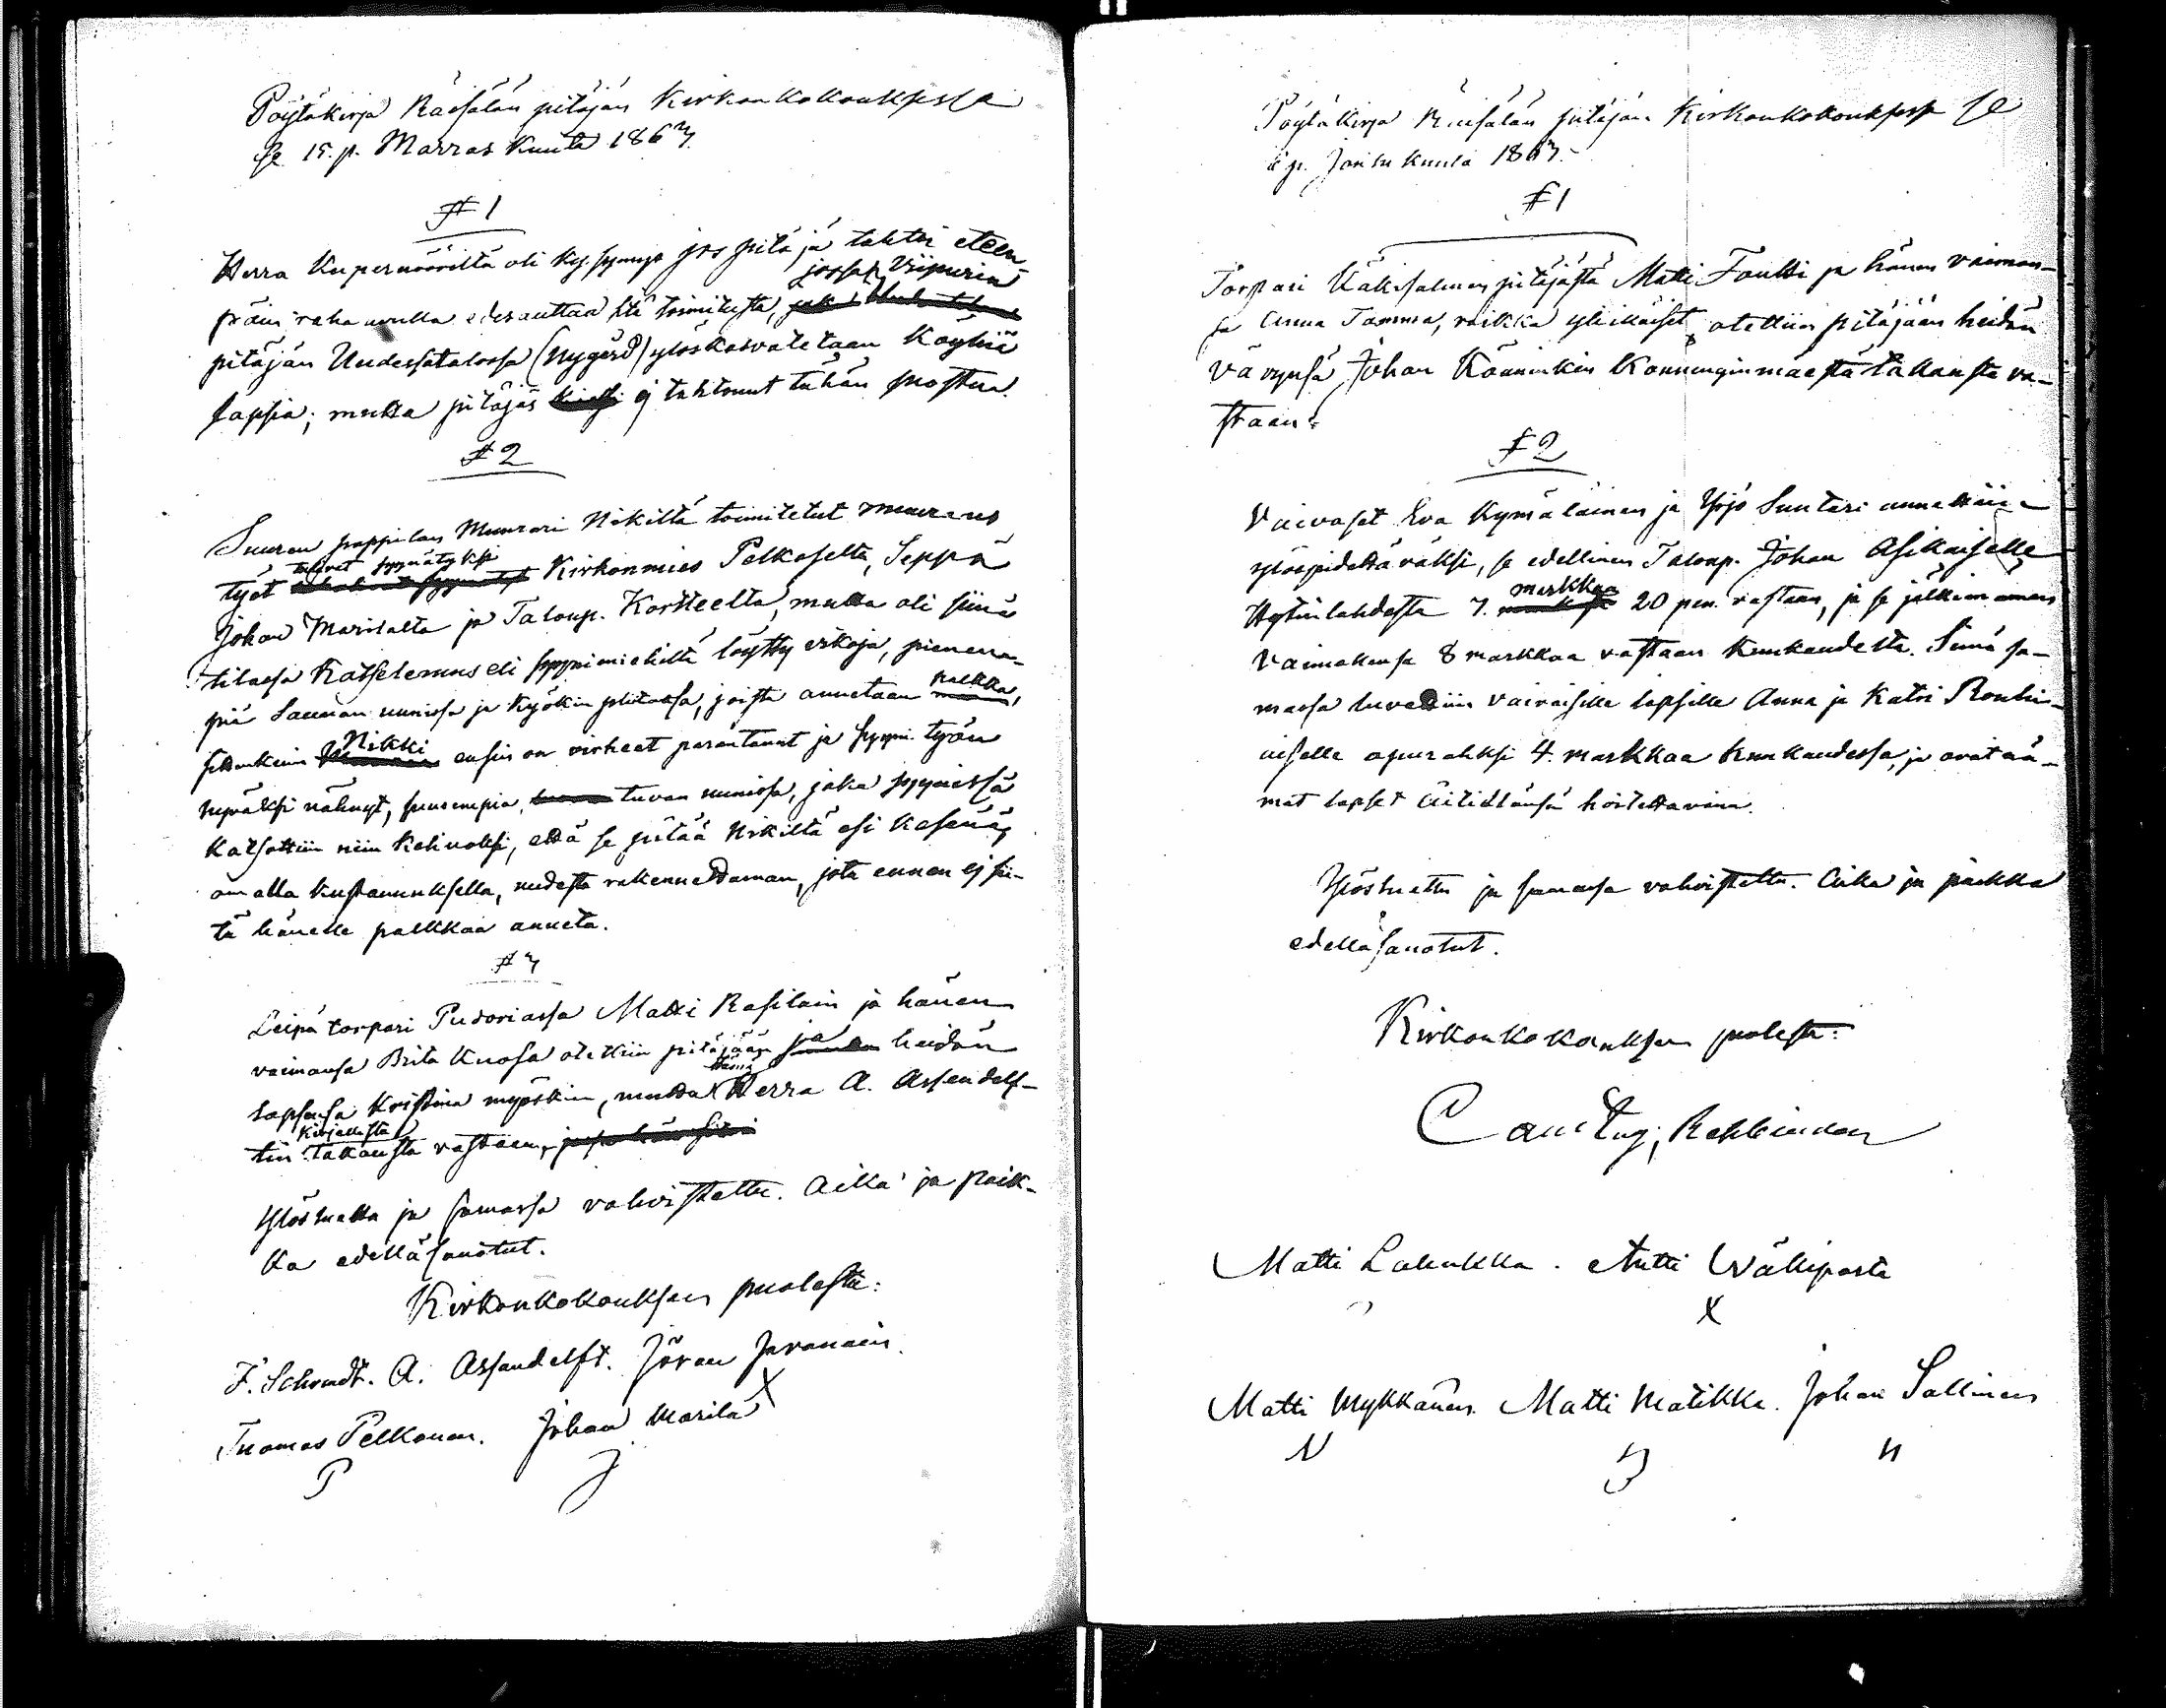 Pöytäkirja Räisälän pitäjän Kirkonkokouksessa
se 15. p. Marras kuuta 1863.
§ 1
Herra Kupernööriltä oli kysymys jos pitäjä tahtoi eteen-
päin raha avulla edesauttaa sitä toimitusta, jossa Viipurin
pitäjän Uudessatalossa (Nygård) ylöskasvatetaan Köyhiä
lapsia; mutta pitäjäs ej tahtonut tähän suostua.
§ 2
Suuren pappilan Muurari Nikiltä toimitetut muuraus
työt tulivat syynätyksi Kirkonmies Pelkoselta, Seppä
Johan Marilalta ja Taloup. Kortteelta, mutta oli siinä
tilassa Katselemus eli syynimiehiltä löytty vikoja, pienem-
piä Saunan uunissa ja Kyökin plitassa, joista annetaan palkka,
sittenkuin Nikki ensin on virheet parantanut ja syyni työn
hyväksi nähnyt, suurempia tuvan uunissa, joka syynissä
katsottiin niin kelvottoksi, että se pitää Nikiltä esi kesänä,
omalla kustannuksella, uudesta rakennettaman, jota ennen ej sii-
tä hänelle palkkaa anneta.
§ 3
Leipä torpari Pudoriassa Matti Rasilain ja hänen
vaimonsa Brita Kuosa otettiin pitäjään ja heidän
lapsensa Kristina myöskin, mutta Herra A. Assendelf-
tin kirjallista takausta vastaan,
Ylösluettu ja samassa vahvistettu. Aika ja paik-
ka edelläsanotut.
Kirkonkokouksen puolesta:
F. Schmdt. A. Assendelft. Jöran Javanain.
X
Tuomas Pelkonen. Johan Marila
P J
Pöytäkirja Räisälän pitäjän Kirkonkokouksessa se
6 p. Joulu kuuta 1863.
§ 1
Torpari Käkisalmen pitäjästä Matti Foutti ja hänen vaimon-
sa Anna Tamma, vaikka yli ikäiset, otettiin pitäjään heidän
vävynsä Johan Könninkin Konninginmäestä takausta va-
staan.
§ 2
Vaivaset Eva Kymäläinen ja Yrjö Suutari annettiin
ylöspidettäväksi, se edellinen Taloup. Johan Asikaiselle
Hytinlahdesta 7. markkaa 20 pen. vastaan, ja se jälkimäinen
Vaimollensa 8 markkaa vastaan kuukaudelta. Siinä sa-
massa luvattiin vaivaisille lapsille Anna ja Katri Rouhi-
aiselle apurahksi 4. markkaa kuukaudessa, ja ovat nä-
mät lapset äitiltänsä hoitettavina.
Ylösluettu ja samassa vahvistettu. Aika ja paikka
edelläsanotut.
Kirkonkokouksen puolesta:
Matti Lalukka. Antti Wäkiparta
X
Matti Mykkänen. Matti Matikka. Johan Sallinen
N 3 n